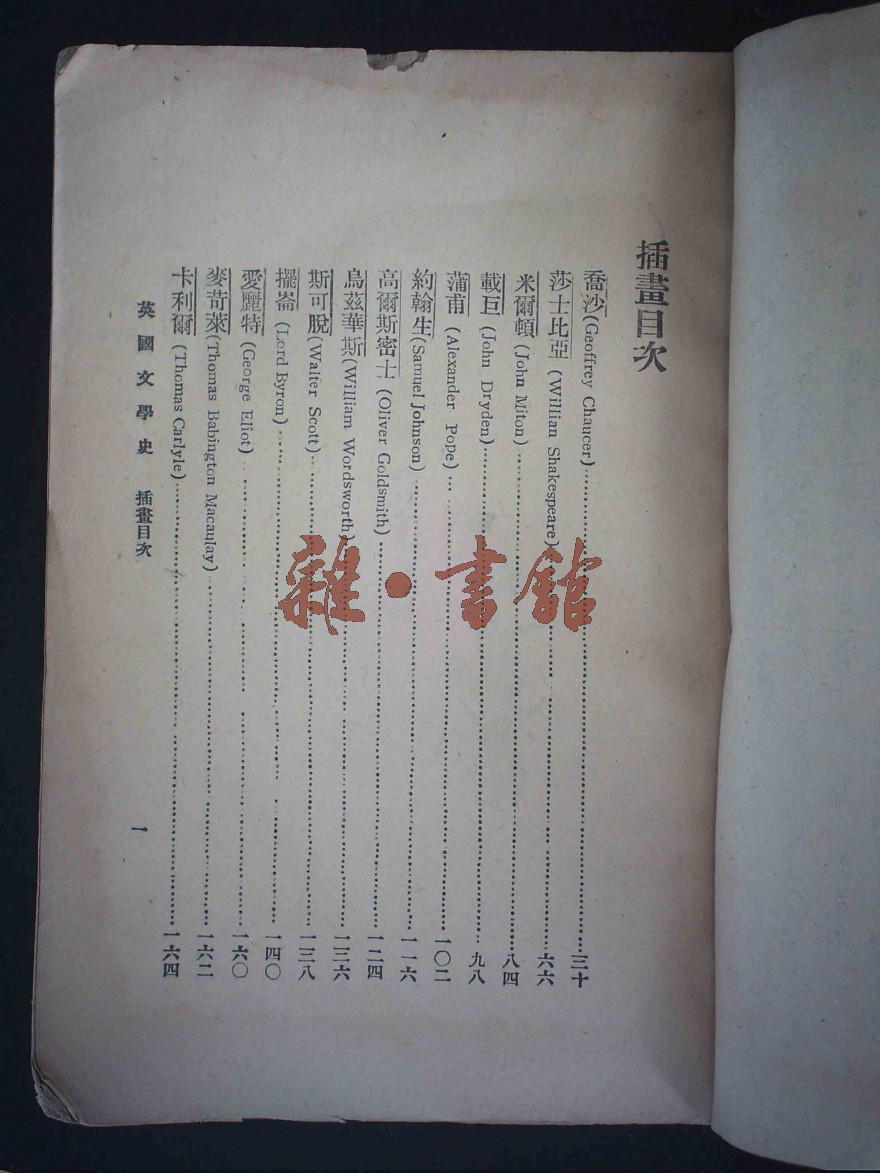 插畫目次
喬沙(Geoffrey Chaucer)……三十
莎士比亞(Willian Shakespeare)……六六
米爾頓(John Miton)……八四
載巨(John Dryden)……九八
蒲甫(Alexander Pope)……一〇二
約翰生(Samuel Johnson)……一一六
高爾斯密士(Oliver Goldsmith)……一二四
烏茲華斯(William Wordsworth)……一三六
斯可脫(Walter Scott)……一三八
擺崙(Lord Byron)……一四〇
愛麗特(George Eliot)……一六〇
麥苛萊(Thomas Babington Macaulay)……一六二
卡利爾(Thomas Carlyle)……一六四
英國文學史 插畫目次 一
雜·書館